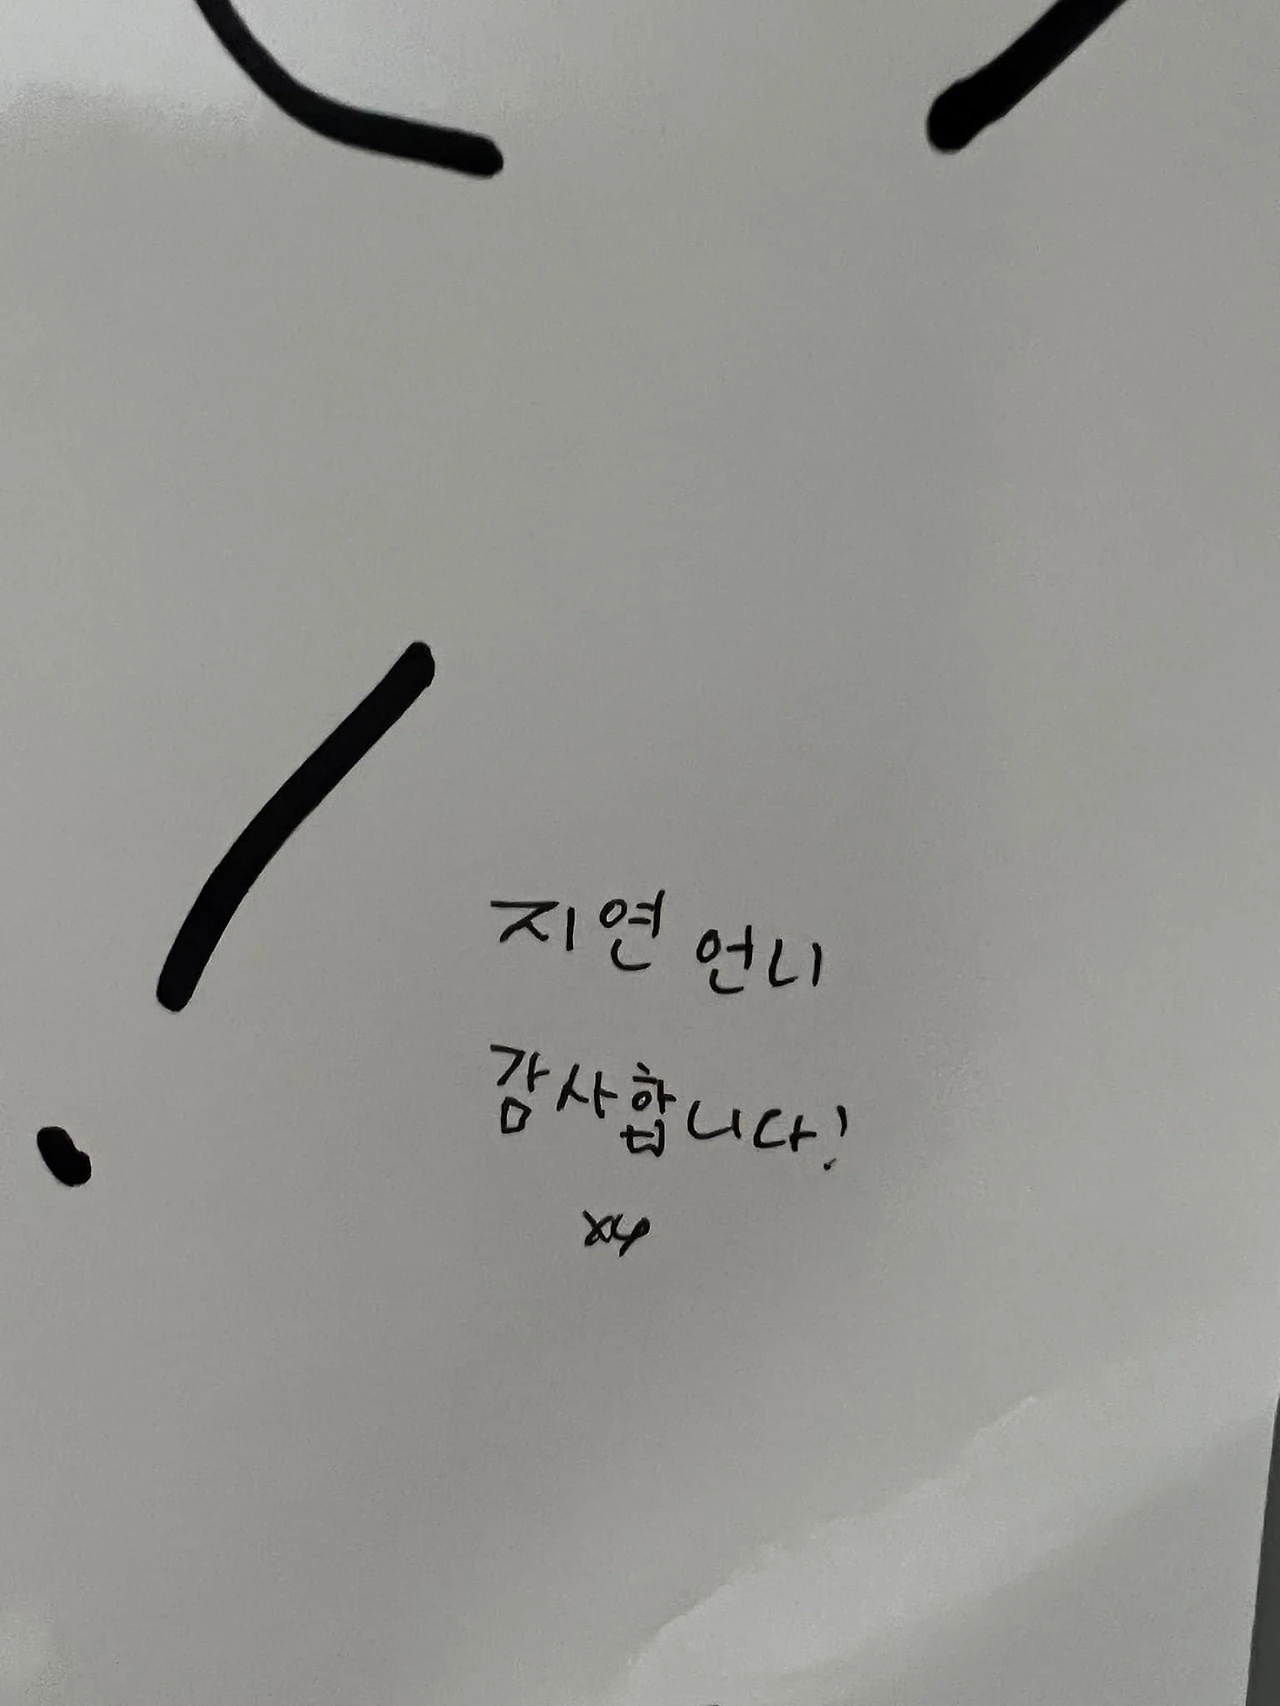 지연 언니
감사합니다!